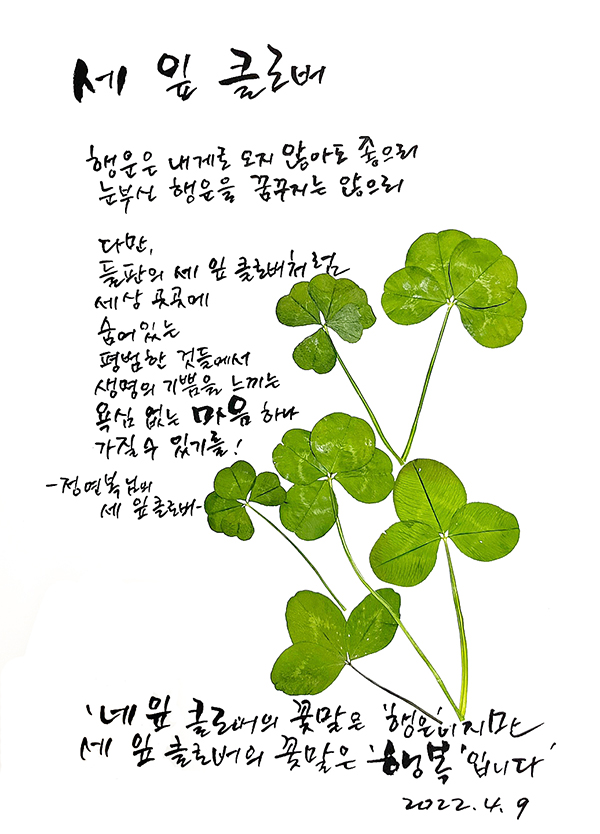 세 잎 클로버
행운은 내게로 오지 않아도 좋으리
눈부신 행운을 꿈꾸지는 않으리
다만,
들판의 세 잎 클로버처럼
세상 곳곳에
숨어있는
평범한 것들에서
생명의 기쁨을 느끼는
욕심 없는 마음 하나
가질 수 있기를!
-정연복님의
세 잎 클로버-
'네 잎 클로버의 꽃말은 '행운'이지만
세 잎 클로버의 꽃말은 '행복'입니다'
2022.4.9